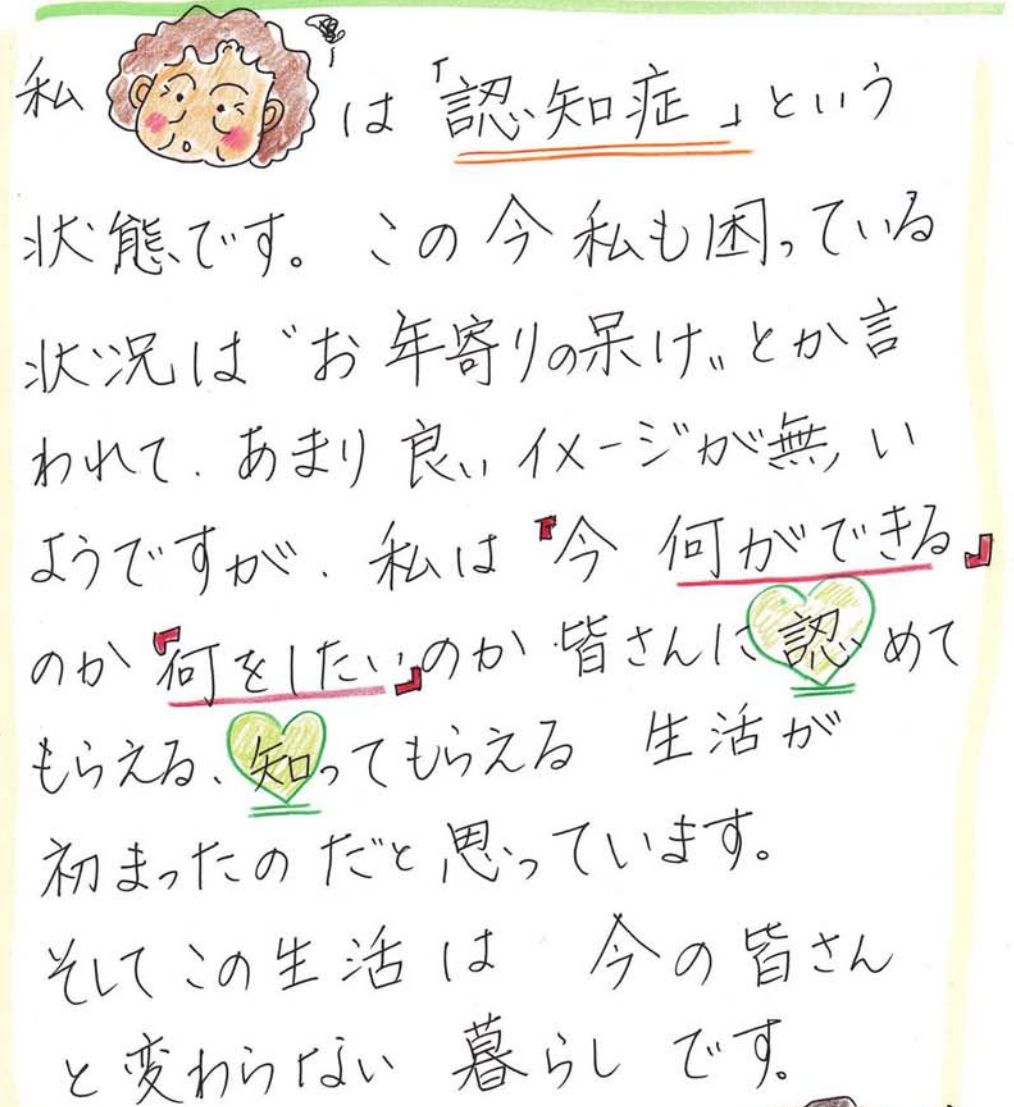 私は「認知症」という
状態です。この今私も困っている
状況は〝お年寄りの呆け〟とか言
われて、あまり良いイメージが無い
ようですが、私は『今 何ができる』
のか『何をしたい』のか皆さんに認めて
もらえる、知ってもらえる 生活が
初まったのだと思っています。
そしてこの生活は 今の皆さん
と変わらない 暮らしです。